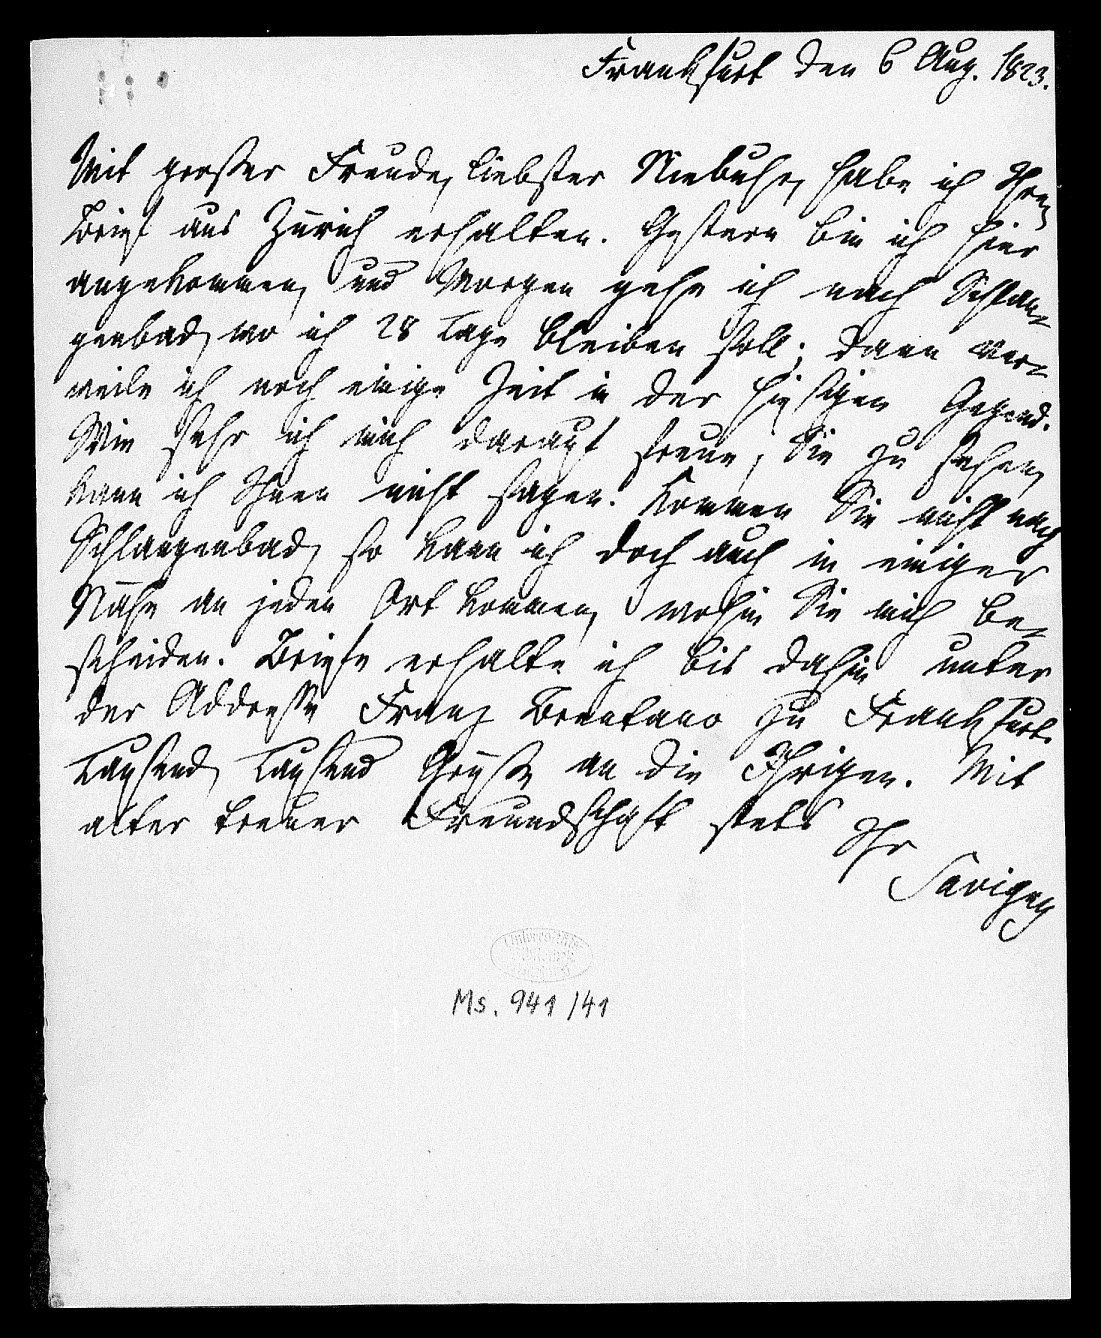 Frankfurt den 6 Aug. 1823.
Mit großer Freude, liebster Niebuhr, habe ich Ihren
Brief aus Zürich erhalten. Gestern bin ich hier
angekommen, und Morgen gehe ich nach Schlan-
genbad, wo ich 28 Tage bleiben soll; dann ver-
weile ich noch einige Zeit in der hiesigen Gegend.
Wie sehr ich mich darauf freue, Sie zu sehen,
kann ich Ihnen nicht sagen. Kommen Sie nicht nach
Schlangenbad, so kann ich doch auch in einiger
Nähe an jeden Ort kommen, wohin Sie mich be-
scheiden. Briefe erhalte ich bis dahin unter
der Addresse Franz Brentano zu Frankfurt.
Tausend, tausend Grüße an die Ihrigen. Mit
alter treuer Freundschaft stets
Ihr
Savigny
Ms. 941/41